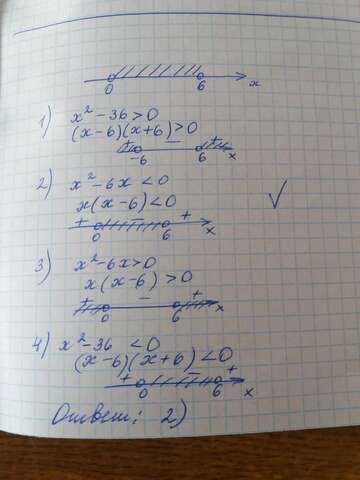 0 6 x
1) x² - 36 > 0
(x-6)(x+6) > 0
+ - +
-6 6 x
2) x² - 6x < 0
x(x-6) < 0
+ - +
0 6 x
3) x² - 6x > 0
x(x-6) > 0
+ - +
0 6 x
4) x² - 36 < 0
(x-6)(x+6) < 0
+ - +
0 6 x
Ответ: 2)